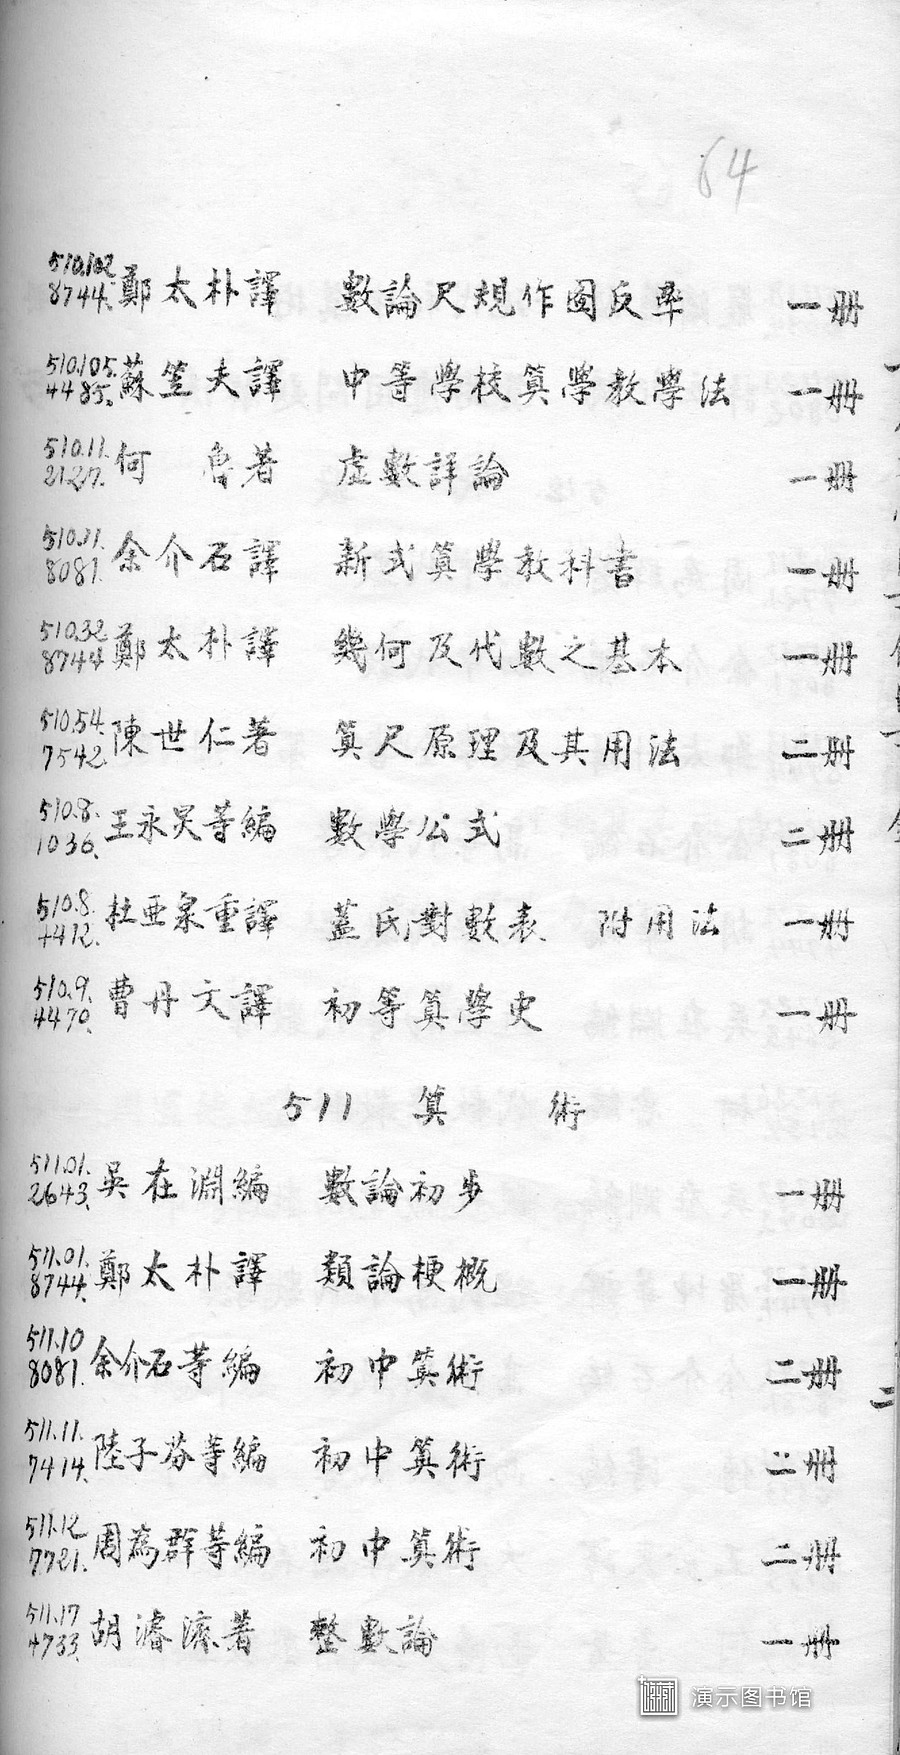 64
510.102 8744. 鄭太朴譯 數論尺規作圖反率 一册
510.105. 4485. 蘇笠夫譯 中等學校算學教學法 一册
510.11. 2127. 何魯著 虛數詳論 一册
510.11. 8081. 余介石譯 新式算學教科書 一册
510.32 8744 鄭太朴譯 幾何及代數之基本 一册
510.54. 7542. 陳世仁著 算尺原理及其用法 二册
510.8. 1036. 王永炅等編 數學公式 二册
510.8. 4412. 杜亞泉重譯 蓋氏對數表 附用法 一册
510.9. 4470. 曹丹文譯 初等算學史 一册
511 算術
511.01. 2643. 吳在淵編 數論初步 一册
511.01. 8744. 鄭太朴譯 類論梗概 一册
511.10 8081. 余介石等編 初中算術 二册
511.11. 7414. 陸子芬等編 初中算術 二册
511.12 7721. 周為群等編 初中算術 二册
511.17 4733. 胡濬濟著 整數論 一册
演示图书馆